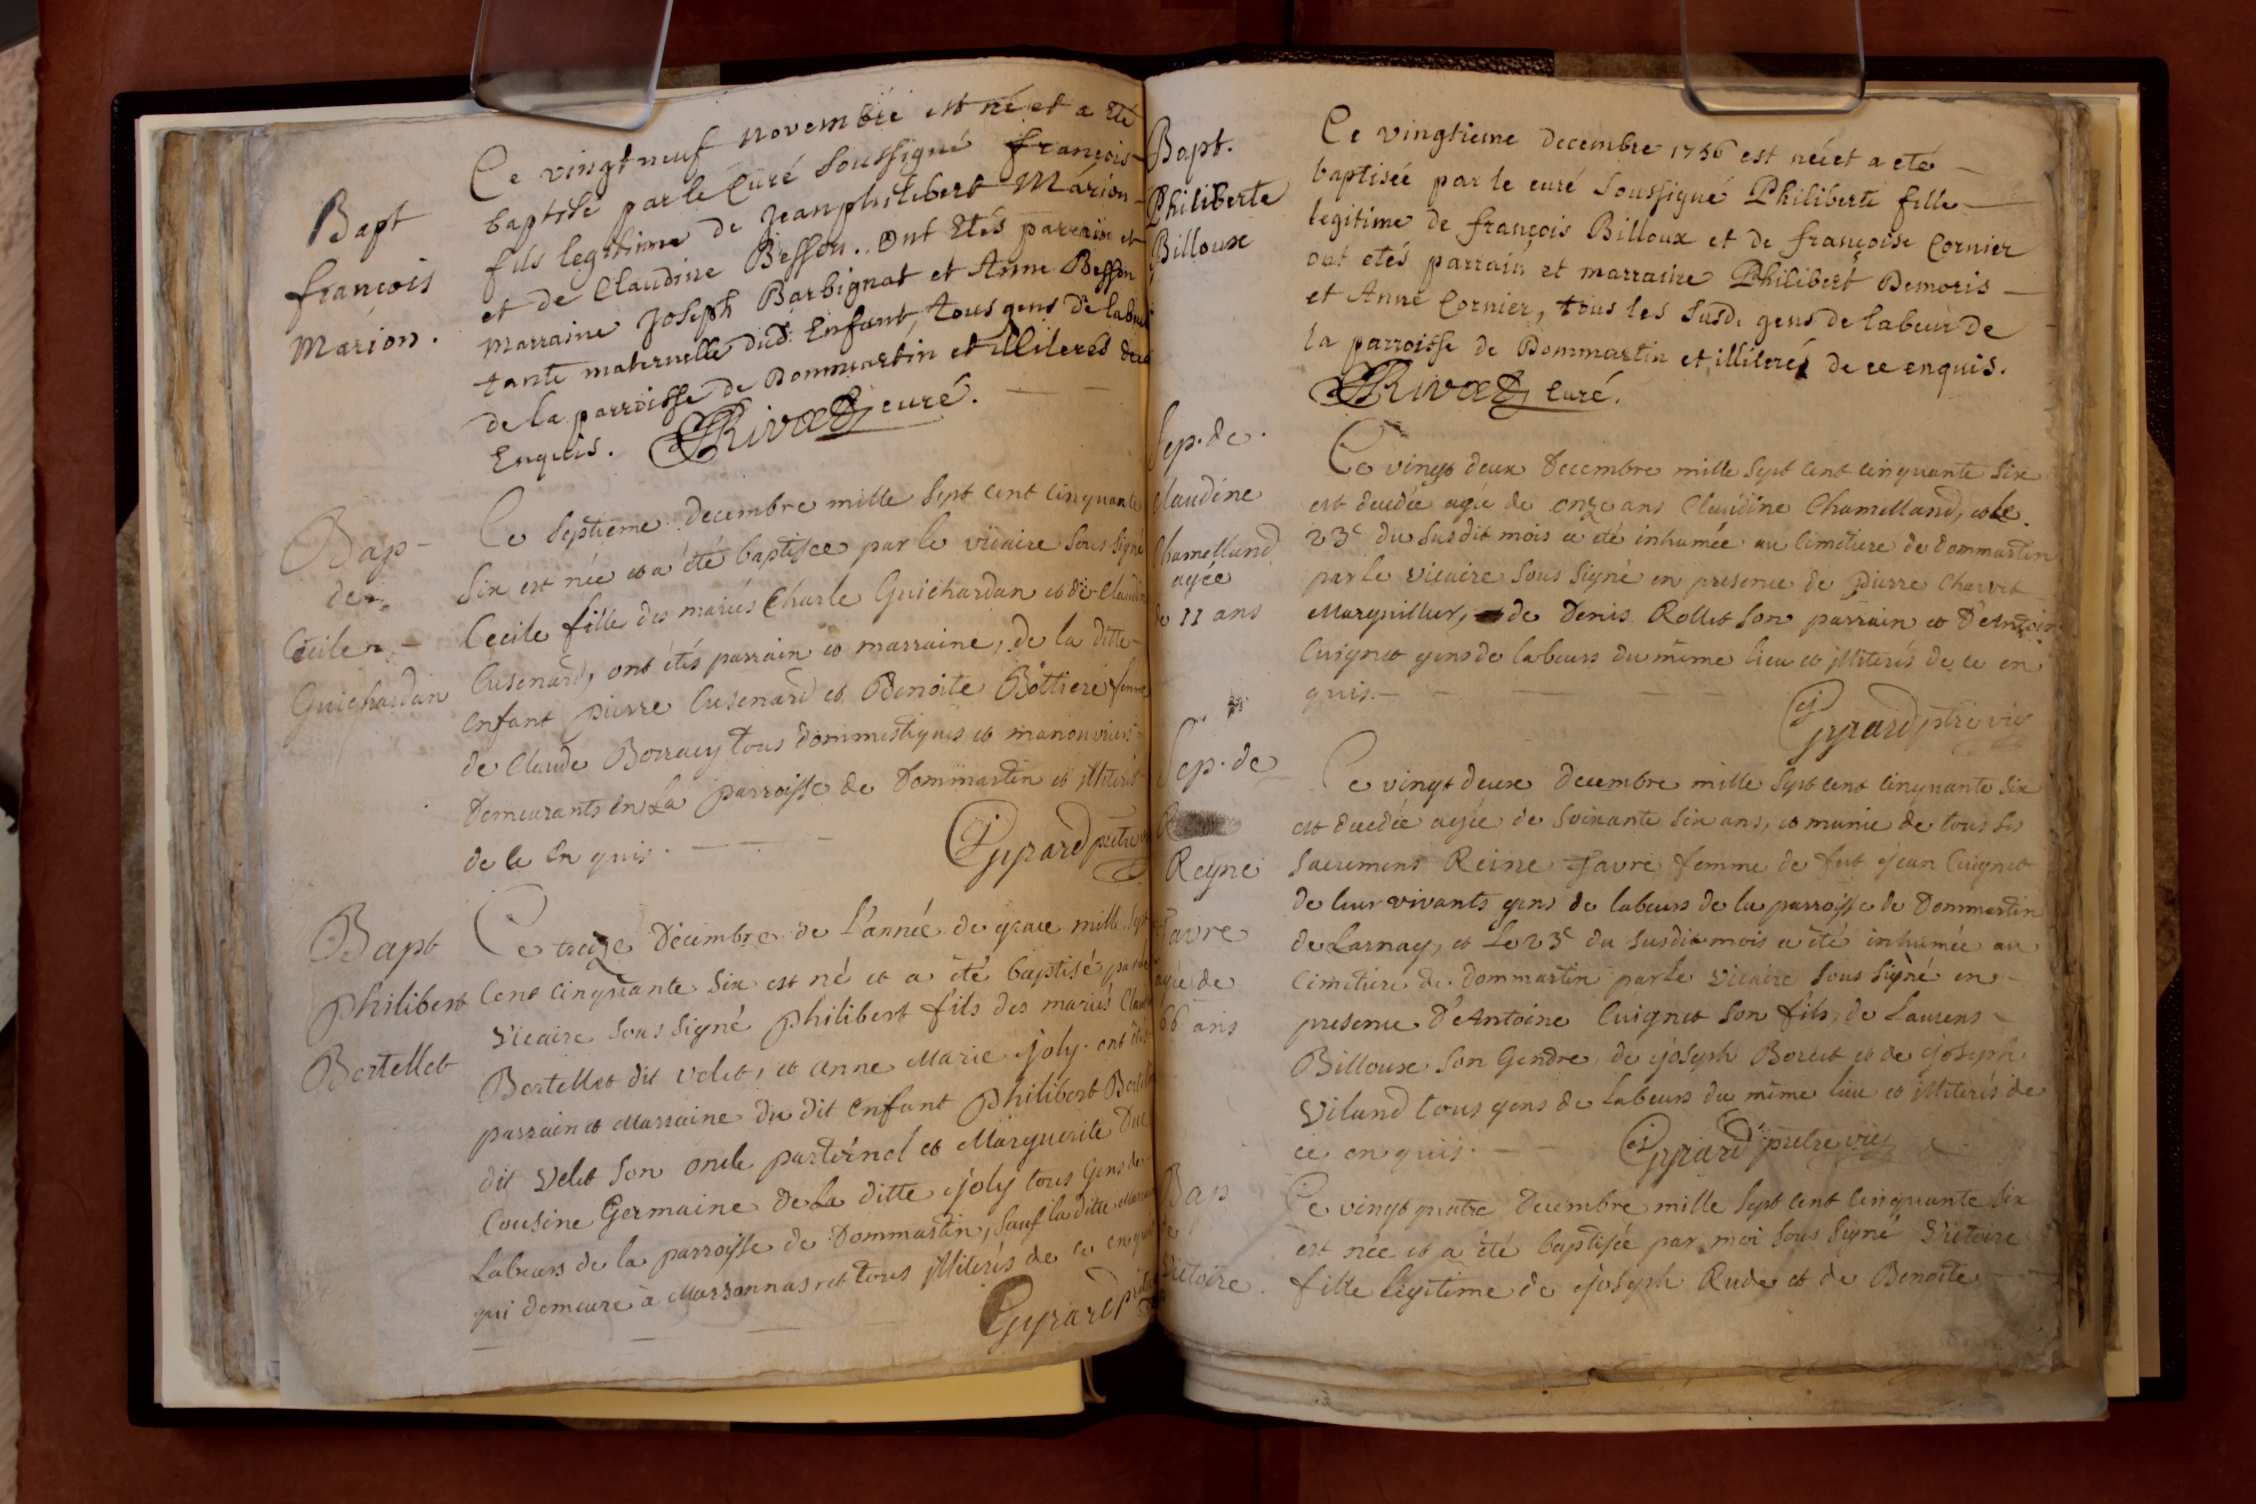 Bapt
françois
Marion.
Ce vingt neuf novembre est né et a eté
baptisé par le Curé soussigné françois
fils legitime de Jean philibert Marion
et de Claudine Besson. Ont Etés parrain et
marraine Joseph Barbignat et Anne Besson
tante maternelle dud. Enfant, tous gens de labeur
de la parroisse de Dommartin et illiterés de ce
Enquis. Rivat curé.
Bap
de
Cécile
Guichardan
Ce septieme decembre mille sept cent cinquante
six est née et a été baptisée par le vicaire sous signé
Cecile fille des mariés Charle Guichardan et de Claudine
Cusenard, ont étés parrain et marraine, de la ditte
enfant pierre Cusenard et Benoite Bottiere femme
de Claude Borracy tous dommestiques et manouvriers
Demeurants en La parroisse de Dommartin et illiterés
de ce en quis. Gyrard prêtre
Bapt
philibert
Bertellet
Ce treize Décembre de L'année de grace mille sept
Cent cinquante six est né et a été baptisé par le
Vicaire sous signé philibert fils des mariés Claude
Bertellet dit velet, et Anne Marie joly. ont étés
parrain et Marraine du dit enfant philibert Bertellet
dit Velet son oncle parternel et Marguerite Duc
Cousine Germaine de La ditte joly tous Gens de
Labeurs de la parroisse de Dommartin, sauf la ditte
qui demeure à Marsonnas et tous illiterés de ce enquis
Gyrard
Bapt.
Philiberte
Billoux
Ce vingtieme decembre 1756 est née et a eté
baptisée par le curé soussigné Philiberte fille
legitime de françois Billoux et de françoise Cornier
ont etés parrain et marraine Philibert Demoris
et Anne Cornier, tous les susd. gens de labeur de
la parroisse de Dommartin et illiterés de ce enquis.
Rivat Curé.
Sep. de
Claudine
Chamelland
agée
de 11 ans
Ce vingt deux Decembre mille sept cent cinquante six
est decedée agée de onze ans Claudine Chamelland, et le
23e du susdit mois a été inhumée au cimetiere de dommartin
par le vicaire sous signé en presence de pierre Charvet
Marguillier, de Denis Rollet son parrain et D'Antoine
Cuignet gens de labeurs du même lieu et illiterés de ce en
quis. Gyrard ptre vic
Sep. de
Reyne
favre
agée de
66 ans
Ce vingt deux decembre mille sept cent cinquante six
est decedée agée de soixante six ans, et munie de tous ses
sacremens Reine favre femme de fut jean Cuignet
de leur vivants gens de labeurs de la parroisse de Dommartin
de Larnay, et Le 23e du susdit mois a été inhumée au
cimetiere de dommartin par le vicaire sous signé en
presence d'Antoine Cuignet son fils, de Laurens
Billoux son Gendre, de joseph Boret et de joseph
Viland tous gens de Labeurs du même lieu et illiterés de
ce en quis. Gyrard prêtre vic
Bap
de
Victoire
Ce vingt quatre Decembre mille sept cent cinquante six
est née et a été baptisée par moi sous signé Victoire
fille legitime de joseph Rude et de Benoite